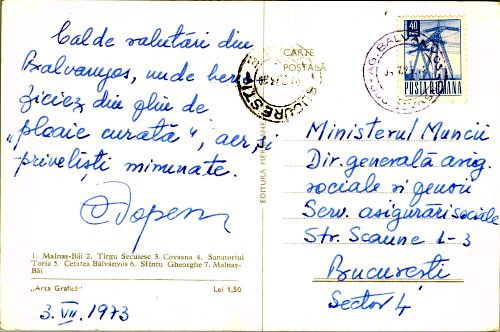 Calde salutări din
Balvanyos, unde bene-
ficiez din plin de
"ploaie curată", aer, și
priveliști minunate.
1. Malnaș-Băi 2. Tîrgu Secuiesc 3. Covasna 4. Sanatoriul
Toria 5. Cetatea Bálványos 6. Sfîntu Gheorghe 7. Malnaș-
Băi
„Arta Grafică"
Lei 1,50
3. VII. 1973
CARTE
POSTALĂ
BUCUREȘTI
EDITURA MERIDIANE
40
POSTA ROMANA
Ministerul Muncii
Dir. generală asig.
sociale și pensii
Serv. asigurări sociale
Str. Scaune 1-3
București
Sector 4